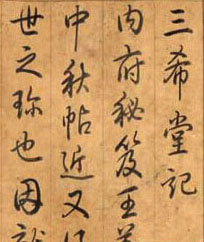 三希堂記
内府秘笈王羲
中秋帖近又得
世之珎也因就